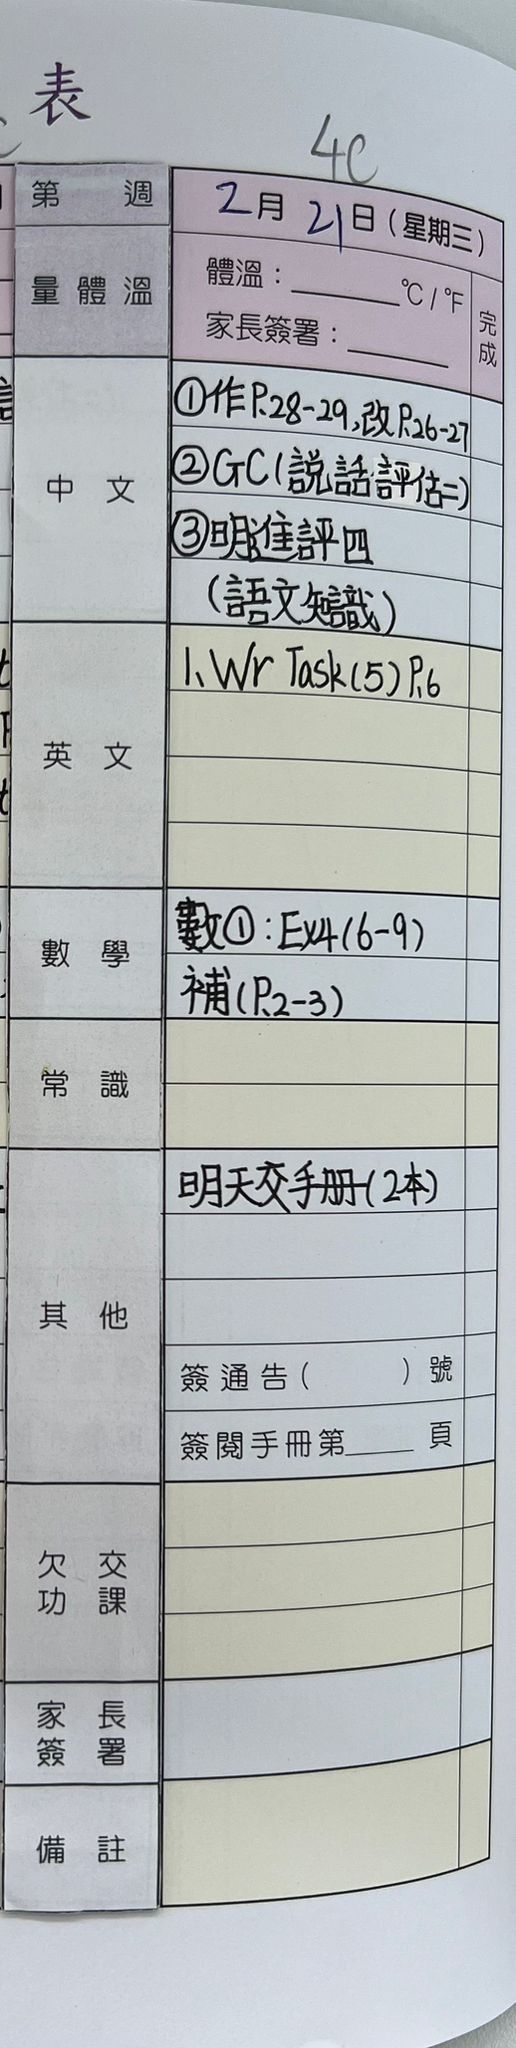 表
4C
第 週
2月21日(星期三)
量體溫
體溫:______°C/°F
家長簽署:______
完成
中文
①作P.28-29,改P.26-27
②GC(說話評估二)
③明進評四
(語文知識)
英文
1. Wr Task(5) P.6
數學
數①:Ex4(6-9)
補(P.2-3)
常識
其他
明天交手册(2本)
簽通告( )號
簽閱手冊第____頁
欠交
功課
家長
簽署
備註